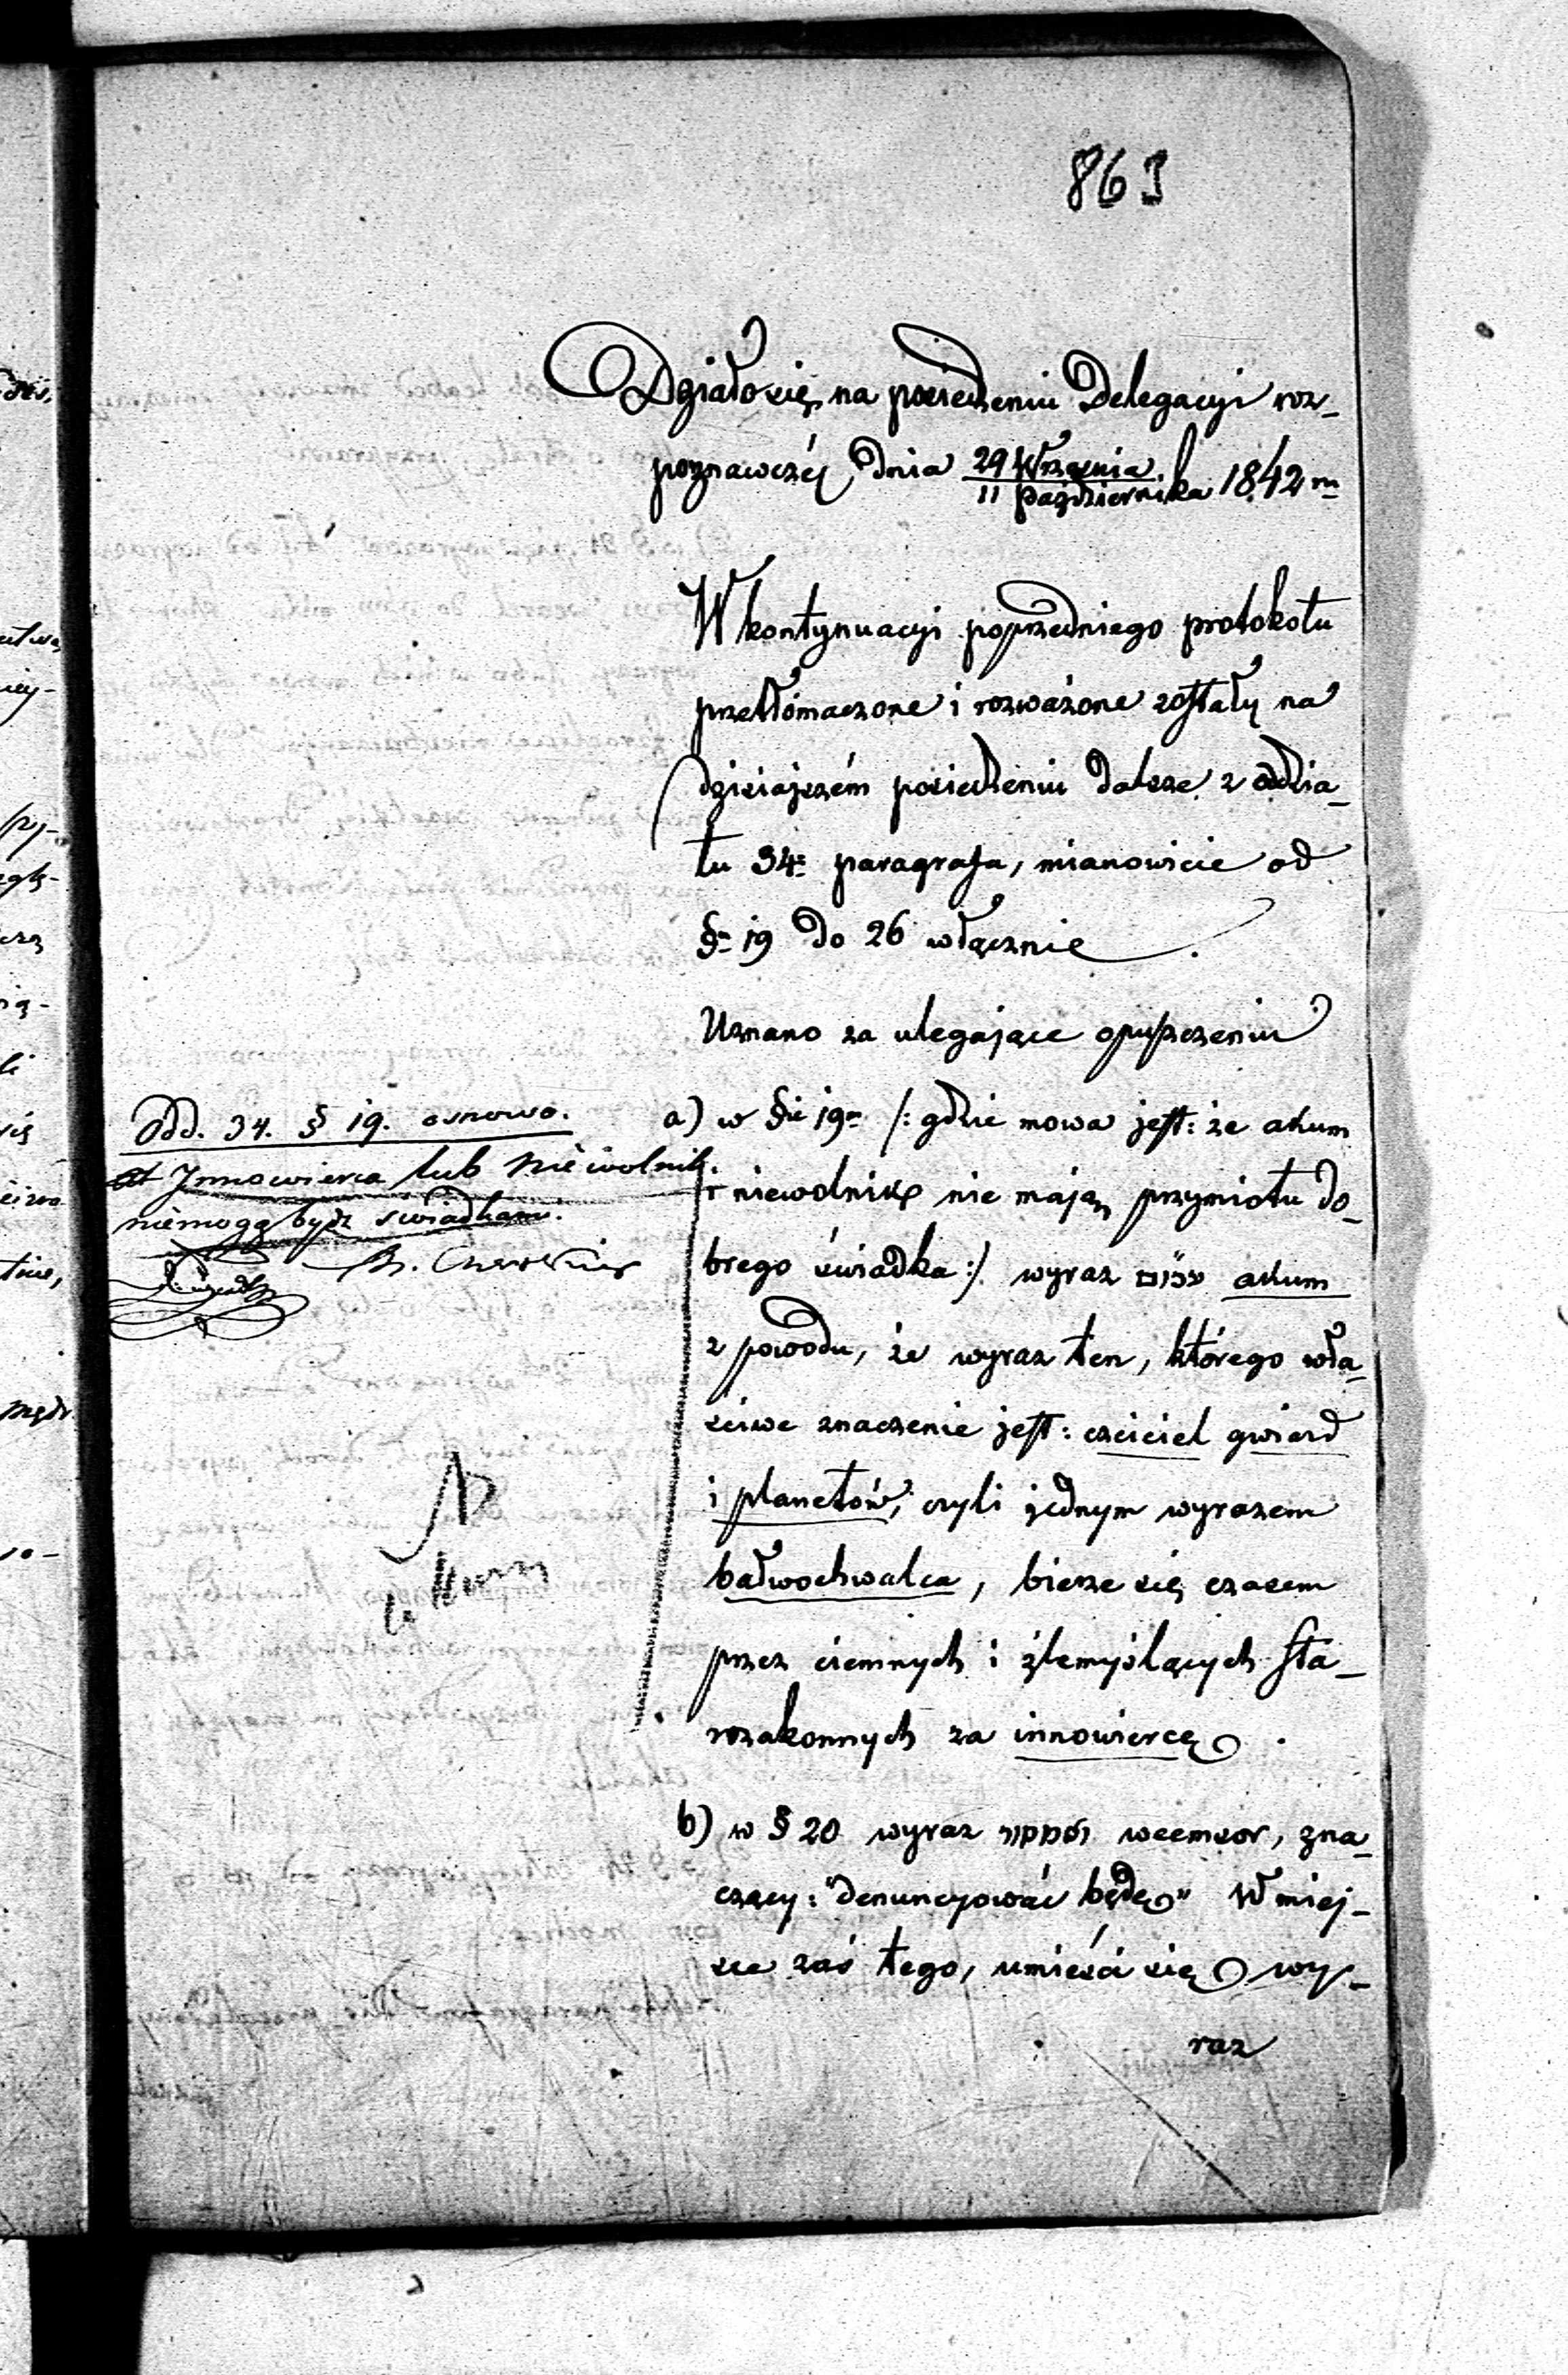 863
Działo się na posiedzeniu Delegacyi roz-
poznawczéj dnia 29 Września
11 Października 1842 r.
W kontynuacyi poprzedniego protokołu
przetłómaczone i rozważone zostały na
dzisiajszém posiedzeniu dalsze z oddzia-
łu 34. paragrafa, mianowicie od
§ 19 do 26 włącznie.
Uznano za ulegające opuszczeniu
a) w §ie 19m /: gdzie mowa jest: że akum
i niewolnik nie mają przymiotu do-
brego świadka :/ wyraz עכו״ם akum
z powodu, że wyraz ten, którego wła-
ściwe znaczenie jest: czciciel gwiazd
i planetów, czyli jednym wyrazem
bałwochwalca, bierze się czasem
przez ciemnych i źlemyślących sta-
rozakonnych za innowiercę.
b) w § 20 wyraz weemsor, zna-
czący: "denuncyować będę" W miej-
sce zaś tego, umieści się wy-
raz
Odd. 34. § 19. osnowa.
Innowierca lub niewolnik
niemogą bydź świadkami.